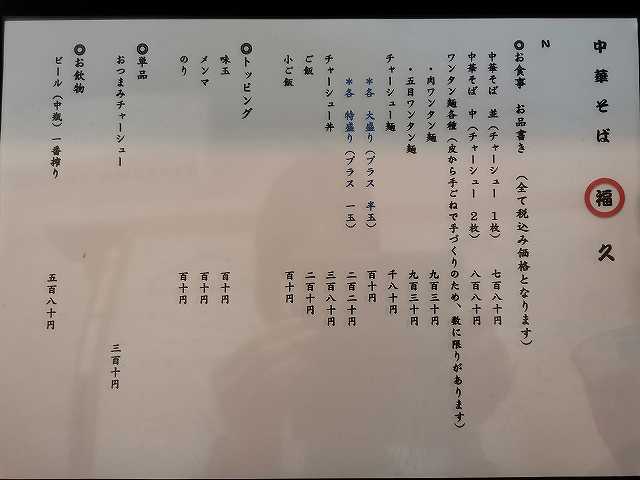 中華そば 福 久
N
◎お食事 お品書き (全て税込み価格となります)
中華そば 並(チャーシュー 1枚) 七百八十円
中華そば 中(チャーシュー 2枚) 八百八十円
ワンタン麺各種(皮から手ごねで手づくりのため、数に限りがあります)
・肉ワンタン麺 九百三十円
・五目ワンタン麺 九百三十円
チャーシュー麺 千八十円
*各 大盛り(プラス 半玉) 百十円
*各 特盛り(プラス 一玉) 二百二十円
チャーシュー丼 三百八十円
ご飯 二百十円
小ご飯 百十円
◎トッピング
味玉 百十円
メンマ 百十円
のり 百十円
◎単品
おつまみチャーシュー 三百十円
◎お飲物
ビール(中瓶)一番搾り 五百八十円